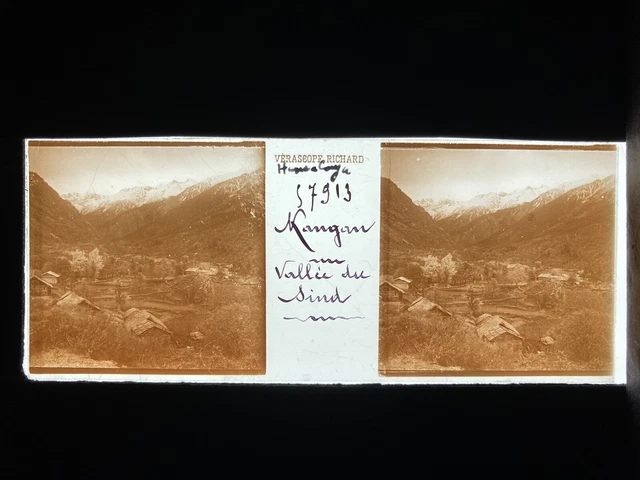 VÉRASCOPE RICHARD
Himalaya
57913
Kangan
Vallée du
Sind